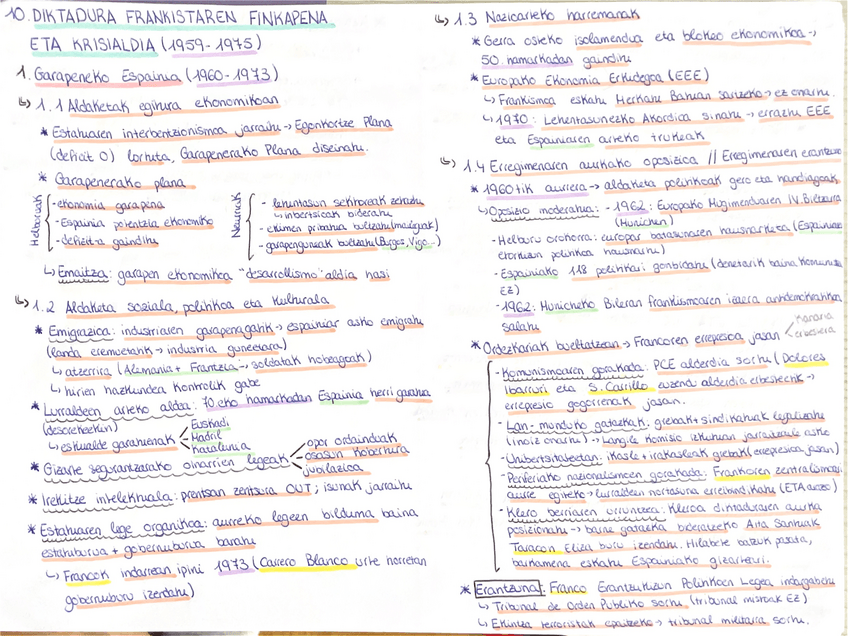 10. DIKTADURA FRANKISTAREN FINKAPENA
ETA KRISIALDIA (1959-1975)
1. Garapeneko Espainia (1960-1973)
↳ 1.1 Aldaketak egitura ekonomikoan
* Estatuaren interbentzionismoa jarraitu → Egonkortze Plana
(deficit 0) lortuta, Garapenerako Plana diseinatu.
* Garapenerako plana
Helburuak
- ekonomia garapena
- Espainia potentzia ekonomiko
- deficit-a gainditu
Neurriak
- lehentasun sektoreak zehaztu
↳ inbertsioak bideratu
- ekimen pribatua bultzatu (maileguak)
- garapenguneak bultzatu (Burgos, Vigo...)
↳ Emaitza: garapen ekonomikoa "desarrollismo" aldia hasi
↳ 1.2 Aldaketa soziala, politikoa eta kulturala
* Emigrazioa: industriaren garapenagatik → espainiar asko emigratu
(landa eremuetatik → industria guneetara)
↳ atzerrira (Alemania + Frantzia → soldatak hobeagoak)
↳ hirien hazkundea kontrolik gabe
* Lurraldeen arteko aldea: 70eko hamarkadan Espainia herri garatua
(desorekekin)
↳ eskualde garatuenak
Euskadi
Madril
Katalunia
* Gizarte segurantzarako oinarrien legeak
opor ordainduak
osasun kobertura
jubilazioa
* Irekitze intelektuala: prentsan zentsura OUT; isunak jarraitu
* Estatuaren lege organikoa: aurreko legeen bilduma baina
estatuburua + gobernuburua banatu
↳ Francok indarrean ipini 1973 (Carrero Blanco urte horretan
gobernuburu izendatu)
↳ 1.3 Nazioarteko harremanak
* Gerra osteko isolamendua eta blokeo ekonomikoa →
50. hamarkadan gainditu
* Europako Ekonomia Erkidegoa (EEE)
↳ Frankismoa eskatu Merkatu Batuan sartzeko → ez onartu.
↳ 1970: Lehentasunezko Akordioa sinatu → erraztu EEE
eta Espainiaren arteko trukeak
↳ 1.4 Erregimenaren aurkako oposizioa // Erregimenaren erantzuna
* 1960tik aurrera → aldaketa politikoak gero eta handiagoak
↳ Oposizio moderatua: - 1962: Europako Mugimenduaren IV. Bilera
(Munichen)
- Helburu orokorra: europar batasunaren hausnarketa (Espainiar
etorkizun politikoa hausnartu)
- Espainiako 118 politikari gonbidatu (denetarik baina komunista
EZ)
- 1962: Municheko Bileran frankismoaren izaera antidemokratikoa
salatu
* Ordezkariak bueltatzean → Francoren errepresioa jasan
Kanaria
erbestera
- Komunismoaren gorakada: PCE alderdia sortu (Dolores
Ibarruri eta S. Carrillo euren alderdia erbestetik →
errepresio gogorrenak jasan.
- Lan-munduko gatazkak: grebak + sindikatuak legalizatu
(inoiz onartu) → Langile Komisio izkutuan jarraitzaile asko
- Unibertsitatean: ikasle + irakasleak grebak (errepresioa jasan)
- Periferiako nazionalismoen gorakada: Frankoren zentralismoari
aurre egiteko → lurraldeen nortasuna erreibindikatu (ETA)
- Klero berriaren: Kleroa diktaduraren aurka
posizionatu → barne gatazka bideratzeko Aita Santuak
Taracon Eliza buru izendatu. Hilabete batzuk pasata,
barkamena eskatu Espainiako gizarteari.
* Erantzuna: Franco Erantzukizun Politikoen Legea indargabetu
↳ Tribunal de Orden Publiko sortu (tribunal mistoak EZ)
↳ Ekintza terroristak epaitzeko → tribunal militarra sortu.